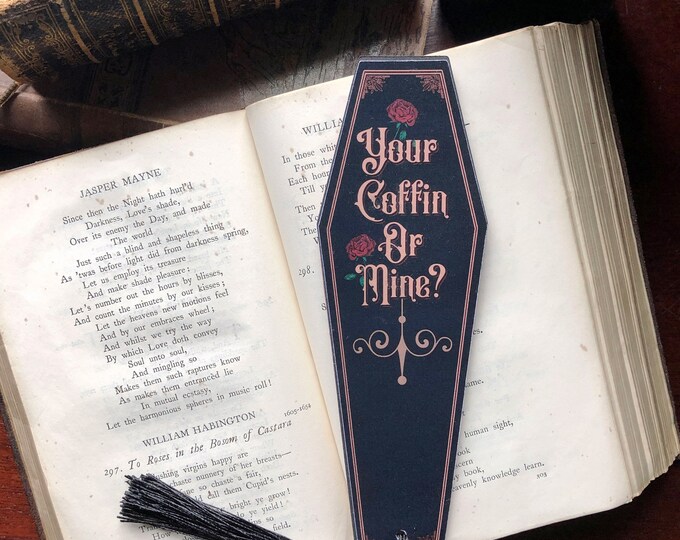 JASPER MAYNE
Since then the Night hath hurl'd
Darkness, Love's shade,
Over its enemy the Day, and made
The world
Just such a blind and shapeless thing
As 'twas before light did from darkness spring,
Let us employ its treasure
And make shade pleasure;
Let's number out the hours by blisses,
And count the minutes by our kisses;
Let the heavens new motions feel
And by our embraces wheel;
And whilst we try the way
By which Love doth convey
Soul unto soul,
And mingling so
Makes them such raptures know
As makes them entrancèd lie
In mutual ecstasy,
Let the harmonious spheres in music roll!
WILLIAM HABINGTON
1605-1654
297. To Roses in the Bosom of Castara
blushing virgins happy are
chaste nunnery of her breasts—
so chaste a fair,
all them Cupid's nests.
bright ye grow!
WILLIA
In those whi
From tho
Each hour
Till y
Then
298.
Your
Coffin
Or
Mine?
human sight,
y book,
cern
book
eavenly knowledge learn.
203